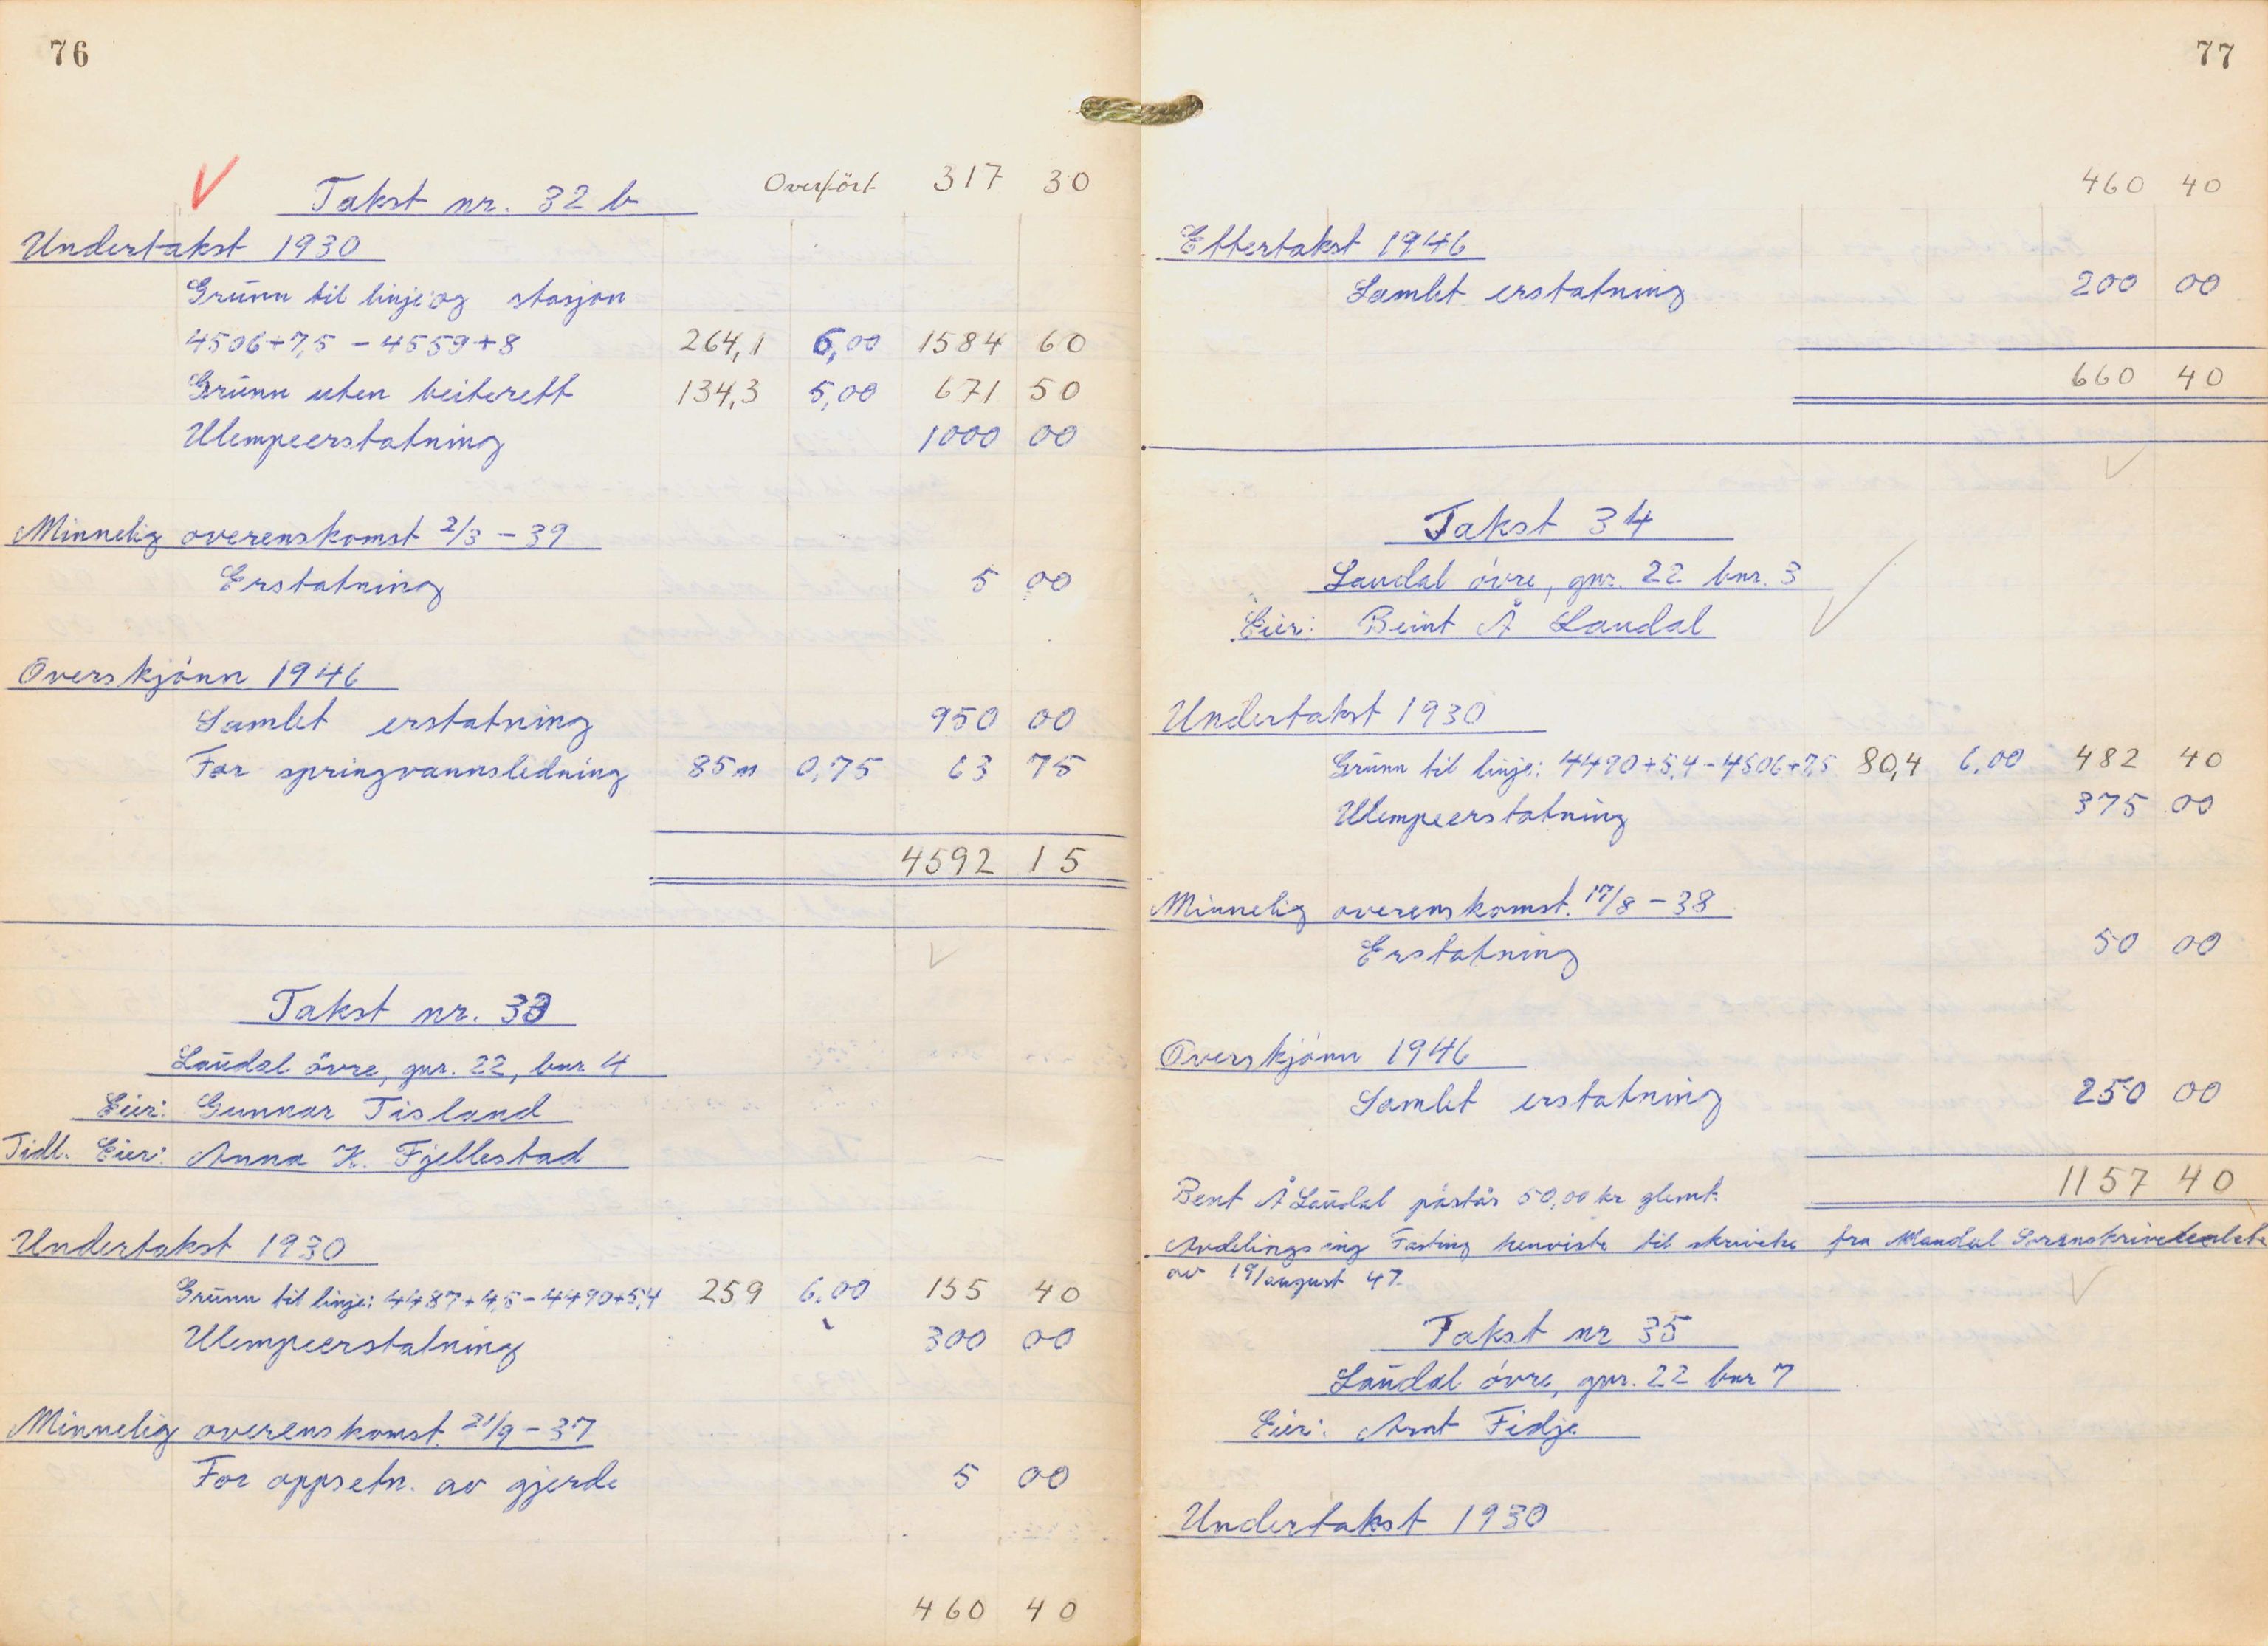 76
Overført 317 30
Takst nr. 32 b
Undertakst 1930
Grunn til linje og stasjon
4506+7,5 - 4559+8 264,1 6,00 1584 60
Grunn uten beiterett 134,3 5,00 671 50
Ulempeerstatning 1000 00
Minnelig overenskomst 2/3 - 39
Erstatning 5 00
Overskjønn 1946
Samlet erstatning 950 00
For springvannsledning 85 m 0,75 63 75
4592 15
Takst nr. 33
Laudal övre, gnr. 22, bnr 4
Eier: Gunnar Tisland
Tidl. Eier: Anna K. Fjellestad
Undertakst 1930
Grunn til linje: 4487+4,5 - 4490+5,4 259 6.00 155 40
Ulempeerstatning 300 00
Minnelig overenskomst. 21/9 - 37
For oppsetn. av gjerde 5 00
460 40
77
460 40
Ettertakst 1946
Samlet erstatning 200 00
660 40
Takst 34
Laudal övre, gnr. 22 bnr. 3
Eier: Beint Å Laudal
Undertakst 1930
Grunn til linje: 4490+5,4 - 4506+7,5 80,4 6.00 482 40
Ulempeerstatning 375 00
Minnelig overenskomst. 17/8 - 38
Erstatning 50 00
Overskjønn 1946
Samlet erstatning 250 00
1157 40
Bent Å Laudal påstår 50,00 kr glemt.
Avdelings ing Fasting henviste til skrivelse fra Mandal
av 19/august 47.
Takst nr 35
Laudal övre, gnr. 22 bnr 7
Eier: Arnt Fidje
Undertakst 1930